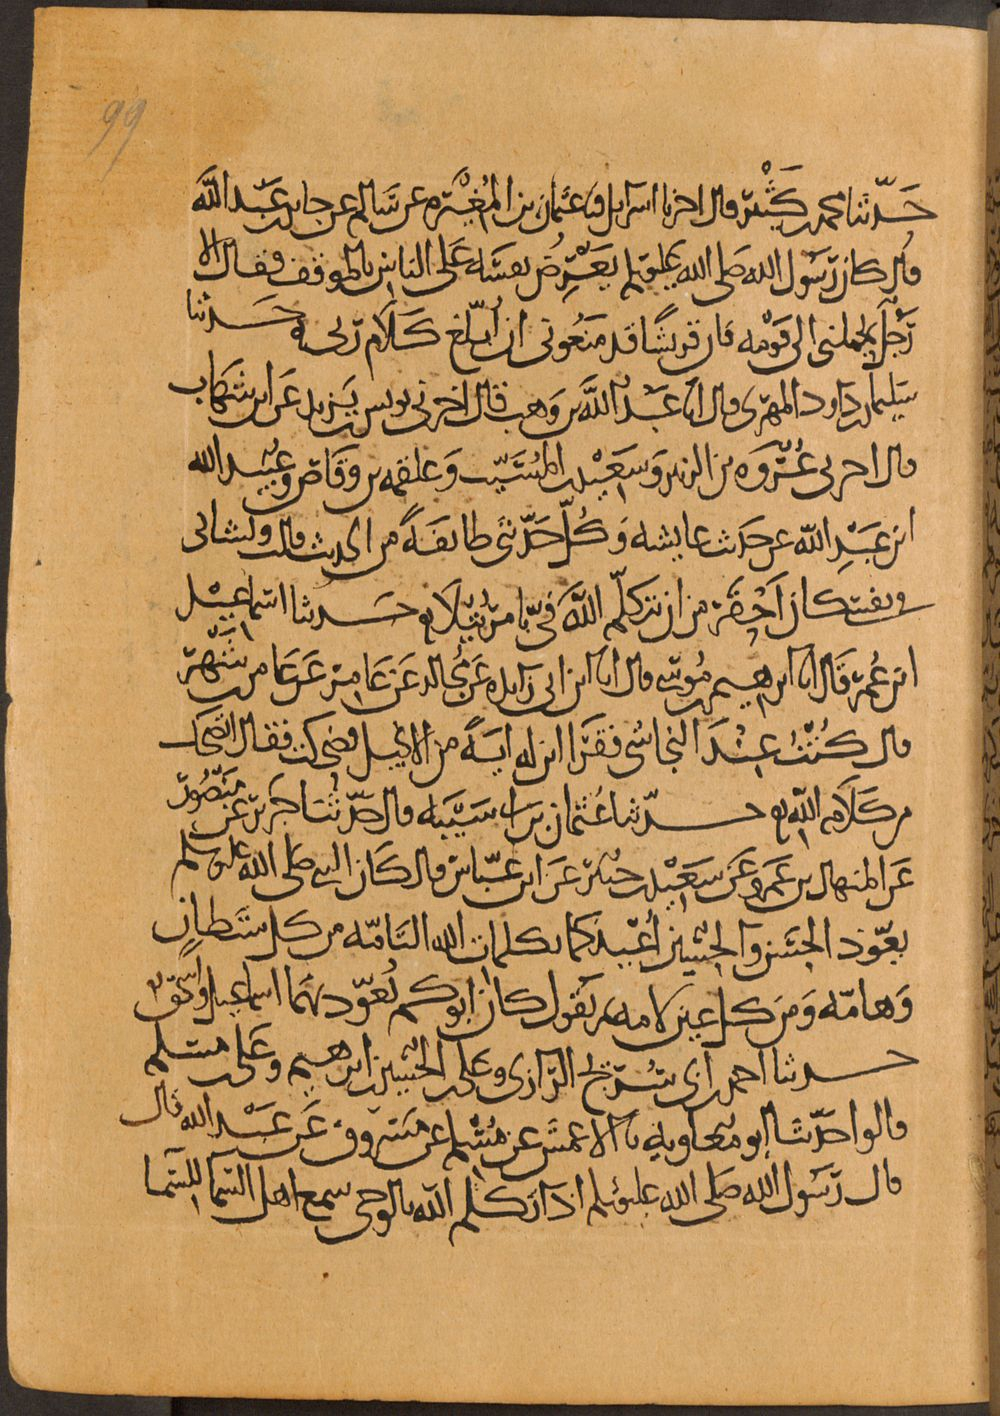 99
حَدّثنا محمد بن كَثْير قال اخبرنا اسرآيل قثنا عثمان بن المُغيْرَه عن سَالم عن جابر بن عَبْد اللَّه
قال كان رَسُول الله صَلى الله عليه وسلم يَعْرِضُ نفسَه عَلَى الناسِ بالموقف فقال الا
رَجُل يحملنى الى قَوْمه فان قريشًا قد مَنَعُونى ان اُبلّغ كَلَام رَبى ه حَــدثنا
سليمان بن داود المهرى قال انا عَبْد اللَّه بن وَهب قال اخبرنى يونس بن يَزيد عَن ابن شِهَاب
قال اخبرنى عُرْوَه بن الزبير وَسَعِيْد بن المُسَيّب وَعلقمه بن وقاص وعُبيد الله
ابن عَبْدِ اللَّه عن حَديث عايشه وَكُلّ حَدّثنى طايفَةً من الحديث قالت ولشانى
فى نفسى كان اَحْقَر من ان يتكلّم اللَّهُ فىّ بامر يُتْلَا ه حَــدثنا اسماعِيْل
ابن عُمَر قَال انا ابرهيم بن مُوسَى قال انا ابن ابى زايده عَن مُجالد عَن عَامِر عَن عَامر بن شَهْر
قال كُنْتُ عِنْدَ النجاشى فقَرَا ابن له ايَةً من الانجيل فضحكت فقال اتضحك
من كَلَام اللَّه ه حــدّثنا عُثمان بن ابى شَيْبَه قال حَدّثنا جَرير عَن مَنْصُور
عَن المنهال بن عَمرو عَن سَعِيْد بن جُبَير عَن ابن عَبّاس قال كَان النبى صَلى الله عليه وسلم
يعَوّذ الحَسَن وَالحُسَين اُعِيْذكما بكلمات الله التَامّه من كل شَيْطانٍ
وَهامّه وَمن كل عين لامه ثم يقول كان ابوكم يُعوّذ بهما اسماعيل واسْحَق ه
حــدثنا احمد بن ابى سُرَيْج الرّازى وعلى بن الحُسَين بن ابرهيم وعَلى بن مُسلم
قالوا حَدّثنا ابو مُعاويه نا الاعمش عن مُسْلم عن مَسْروق عَن عَبْد الله قال
قال رَسُول الله صَلى الله عليه وسلم اذا تكلم اللَّه بالوحى سمع اهل السّما للسّما